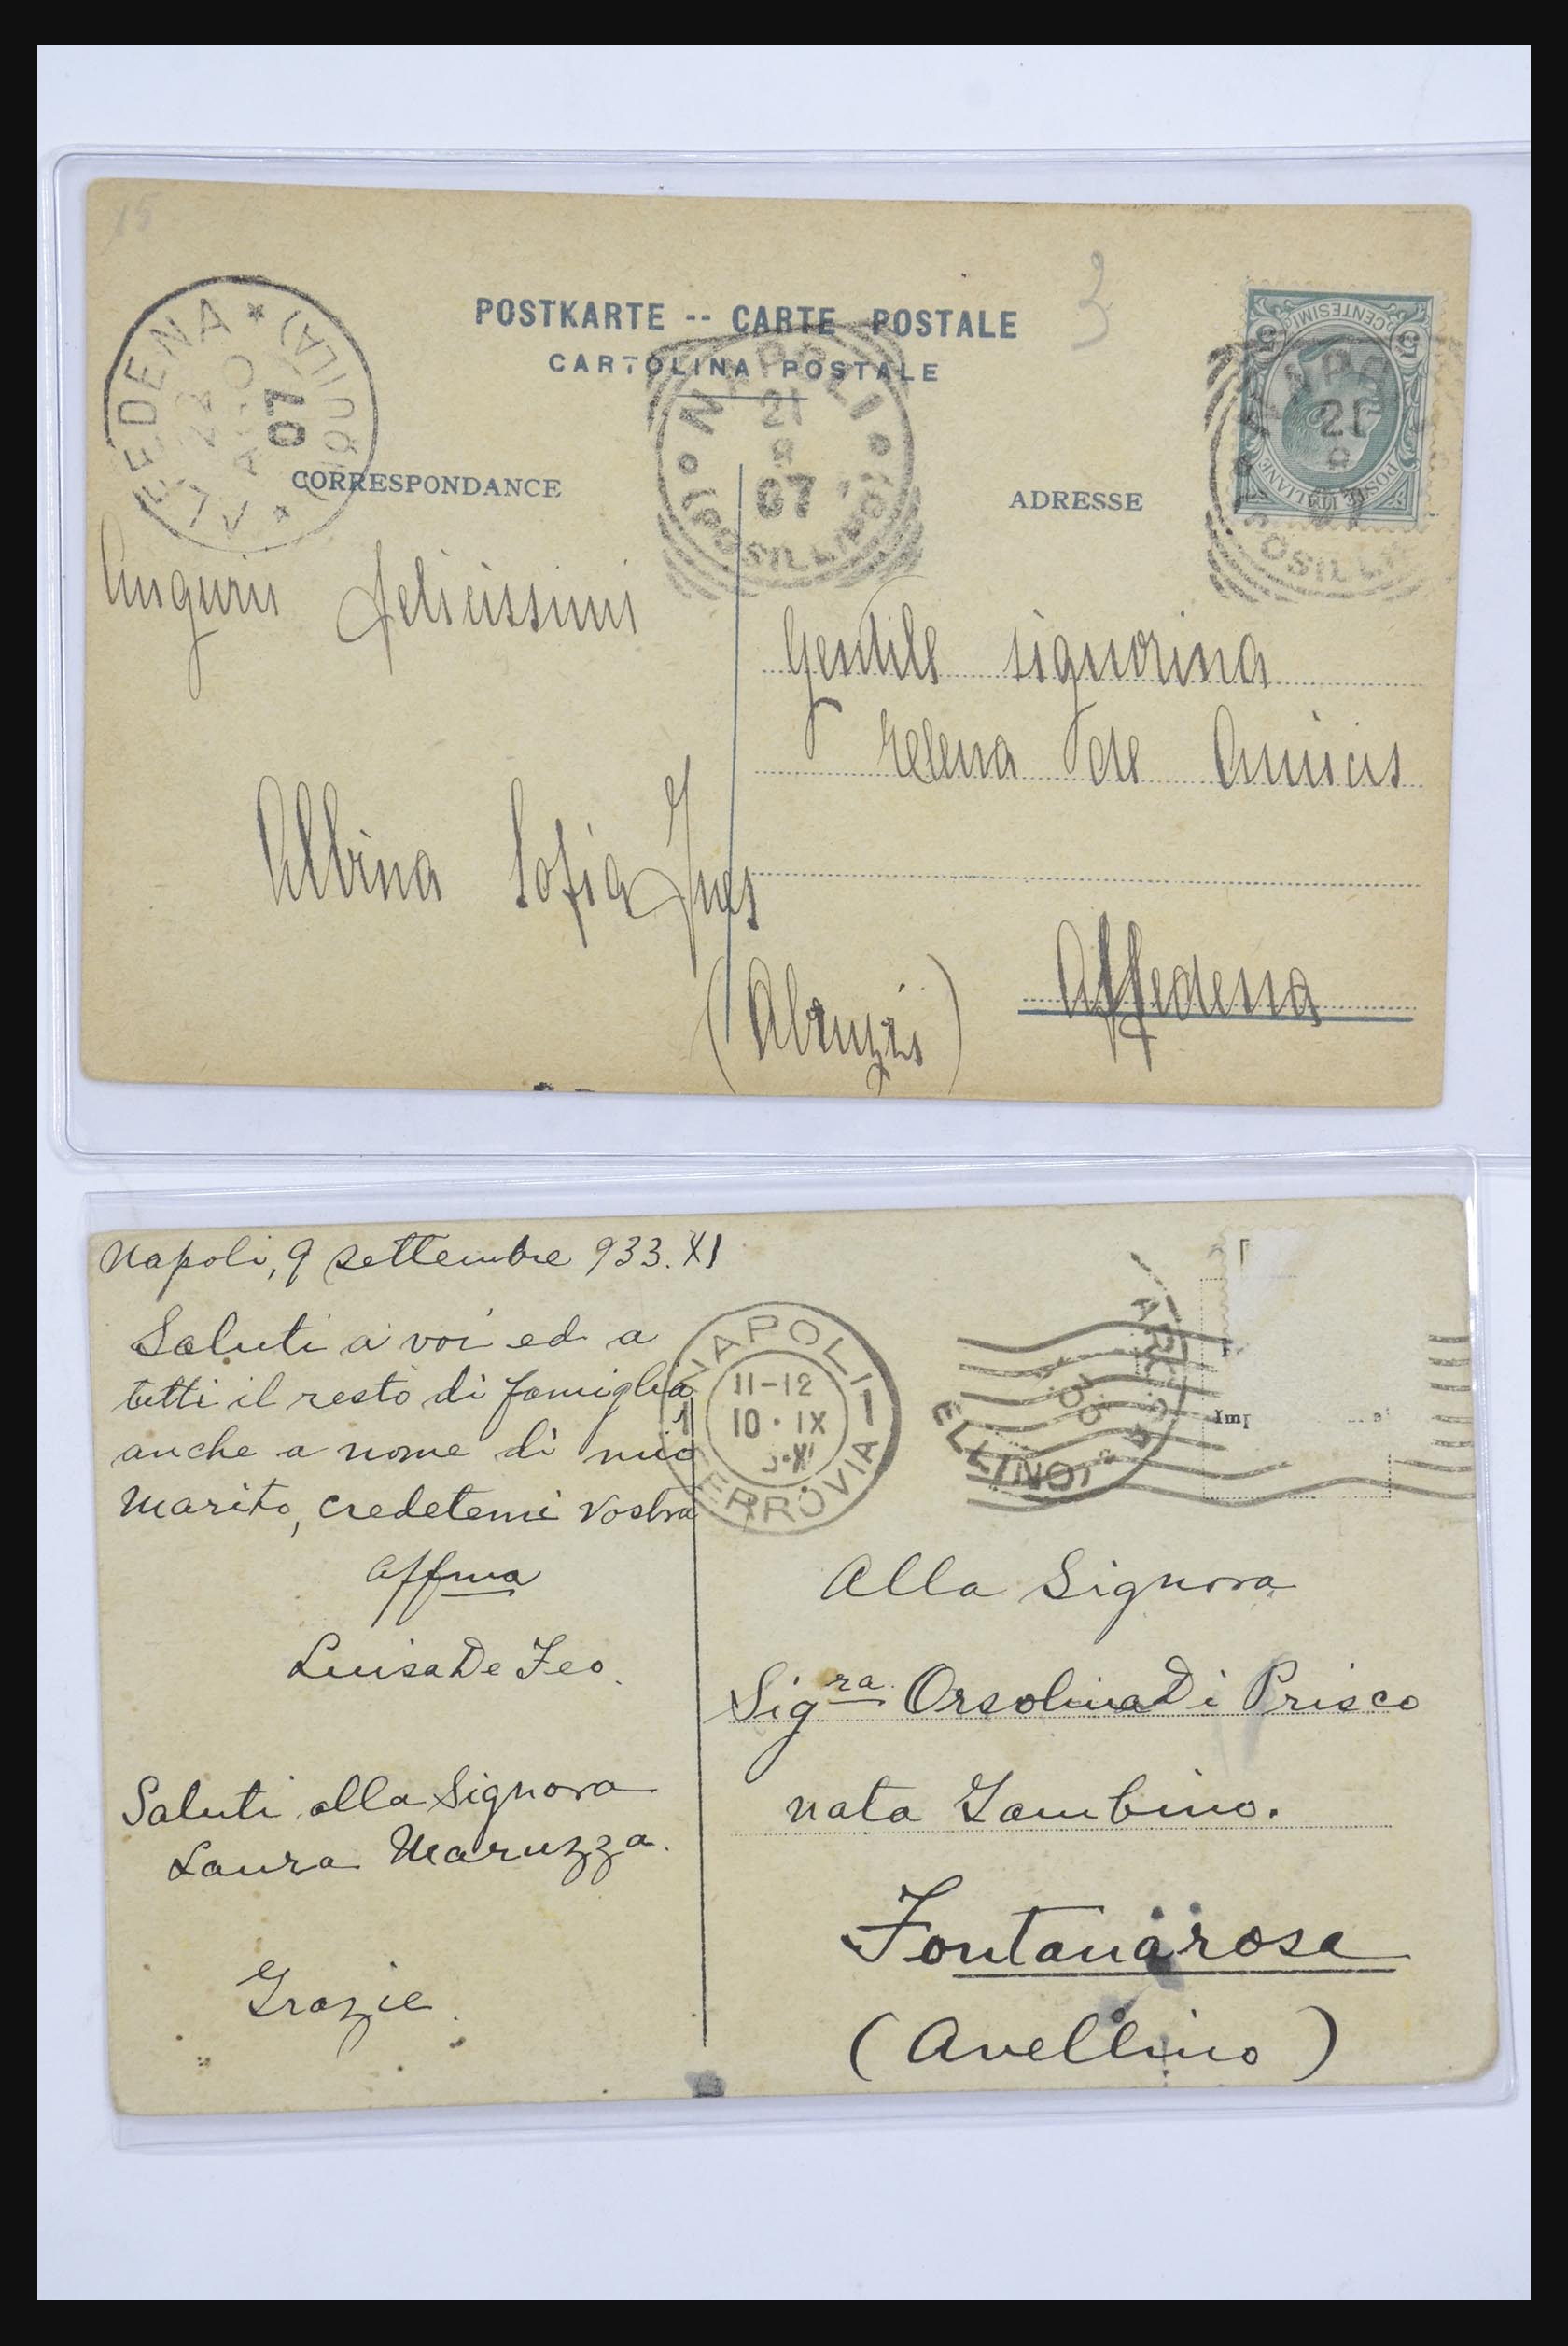 15
3
POSTKARTE -- CARTE POSTALE
CARTOLINA POSTALE
ALFEDENA * (AQUILA) *
22 AGO 07
NAPOLI
21
8
07
(POSILLIPO)
5 CENTESIMI 5
POSTE ITALIANE
NAPOLI
21
8
07
(POSILLIPO)
CORRESPONDANCE
ADRESSE
Augurii felicissimi
Albina Sofia Ines
Gentile signorina
Elena de Amicis
Alfedena
(Abruzzi)
Napoli, 9 settembre 933. XI
Saluti a voi ed a
tutti il resto di famiglia
anche a nome di mio
marito, credetemi vostra
affma
Luisa De Feo.
Saluti alla Signora
Laura Maruzza.
Grazie.
NAPOLI
11-12
10 · IX
XI
FERROVIA
ELLINO)
Alla Signora
Sigra Orsolina Di Prisco
nata Gambino.
Fontanarosa
(Avellino)